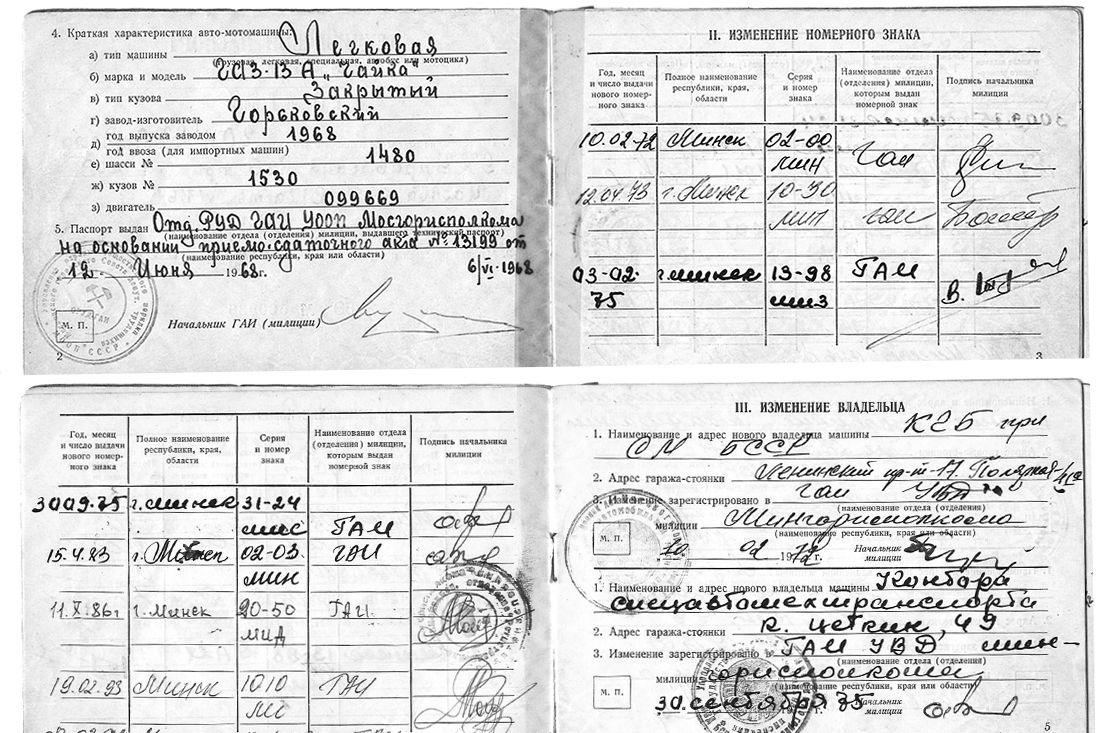 4. Краткая характеристика авто-мотомашины:
а) тип машины Легковая
(грузовая, легковая, специальная, автобус или мотоцикл)
б) марка и модель ГАЗ-13 А „Чайка"
в) тип кузова Закрытый
г) завод-изготовитель Горьковский
д) год выпуска заводом 1968
год ввоза (для импортных машин)
е) шасси № 1480
ж) кузов № 1530
з) двигатель 099669
5. Паспорт выдан Отд. РУД ГАИ УООП Мосгорисполкома
(наименование отдела (отделения) милиции, выдавшего технический паспорт)
на основании приемо-сдаточного акта № 13199 от
(наименование республики, края или области)
12 Июня 1968г. 6/VI-1968
М. П.
Начальник ГАИ (милиции)
2
II. ИЗМЕНЕНИЕ НОМЕРНОГО ЗНАКА
Год, месяц и число выдачи нового номерного знака
Полное наименование республики, края, области
Серия и номер знака
Наименование отдела (отделения) милиции, которым выдан номерной знак
Подпись начальника милиции
10.02.72 Минск 02-00
мин ГАИ
12.04.73 г. Минск 10-30
мип ГАИ
03-02- г. Минск 13-98 ГАИ
75 миз
3
Год, месяц и число выдачи нового номерного знака
Полное наименование республики, края, области
Серия и номер знака
Наименование отдела (отделения) милиции, которым выдан номерной знак
Подпись начальника милиции
3009.75 г. Минск 31-24
мис ГАИ
15.4.83 г. Минск 02-03. ГАИ
мин
11.X.86г г. Минск 20-50 ГАИ
мид
19.02.93 Минск 1010 ГАИ
III. ИЗМЕНЕНИЕ ВЛАДЕЛЬЦА
1. Наименование и адрес нового владельца машины КГБ при
СМ БССР
2. Адрес гаража-стоянки Ленинский пр-т-17.
3. Изменение зарегистрировано в ГАИ УВД
(наименование отдела (отделения)
милиции Мингорисполкома
(наименование республики, края или области)
М. П.
10. 02 1972 г. Начальник милиции
1. Наименование и адрес нового владельца машины Контора
спецавтомехтранспорта
2. Адрес гаража-стоянки К. Цеткин, 49
3. Изменение зарегистрировано в ГАИ УВД мин-
(наименование отдела (отделения)
милиции горисполкома
(наименование республики, края или области)
М. П.
30. сентября 75 г. Начальник милиции
5